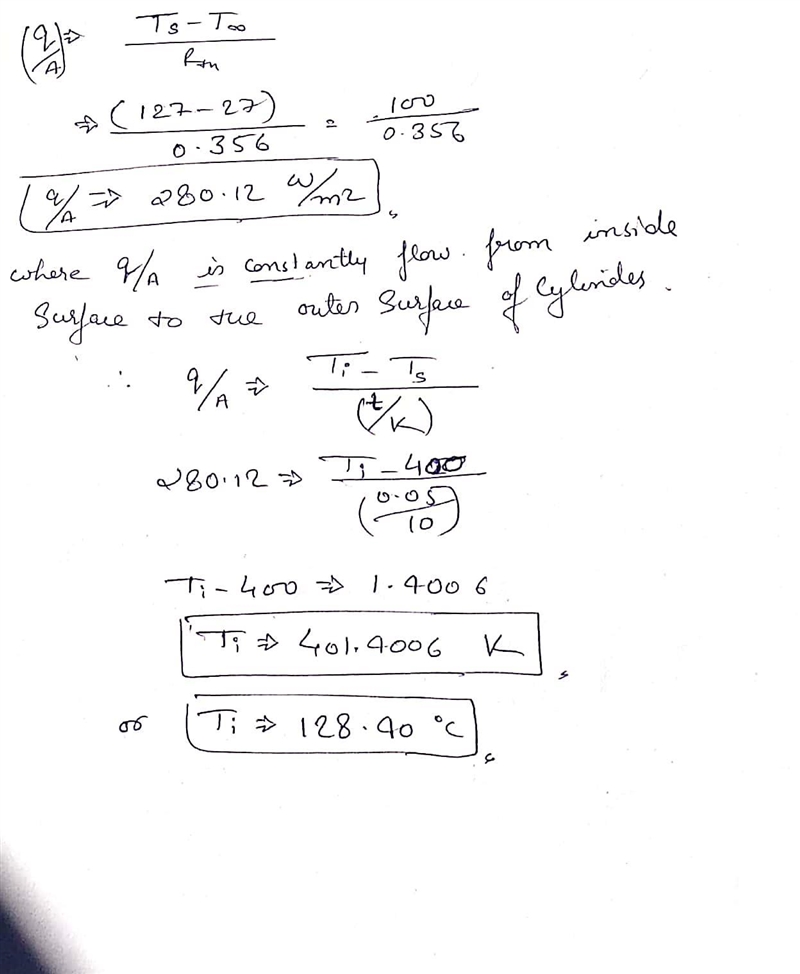 (q/A) ⇒ Ts - T∞ / Rth
⇒ (127-27) / 0.356 = 100 / 0.356
q/A ⇒ 280.12 W/m2
where q/A is constantly flow. from inside
Surface to tue outer Surface of Cylindes.
∴ q/A ⇒ Ti - Ts / (t/K)
280.12 ⇒ Ti - 400 / (0.05/10)
Ti - 400 ⇒ 1.4006
Ti ⇒ 401.4006 K
or Ti ⇒ 128.40 °C